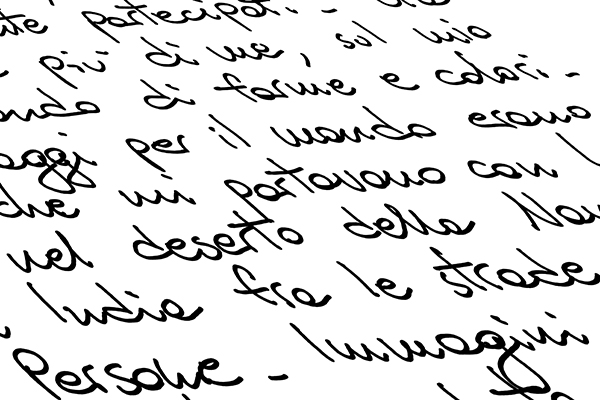 partecipar. -
più di me, sul mio
di forme e colori. -
per il mondo erano
che mi portavano con
nel deserto della
India fra le strade
Persone - Immagini